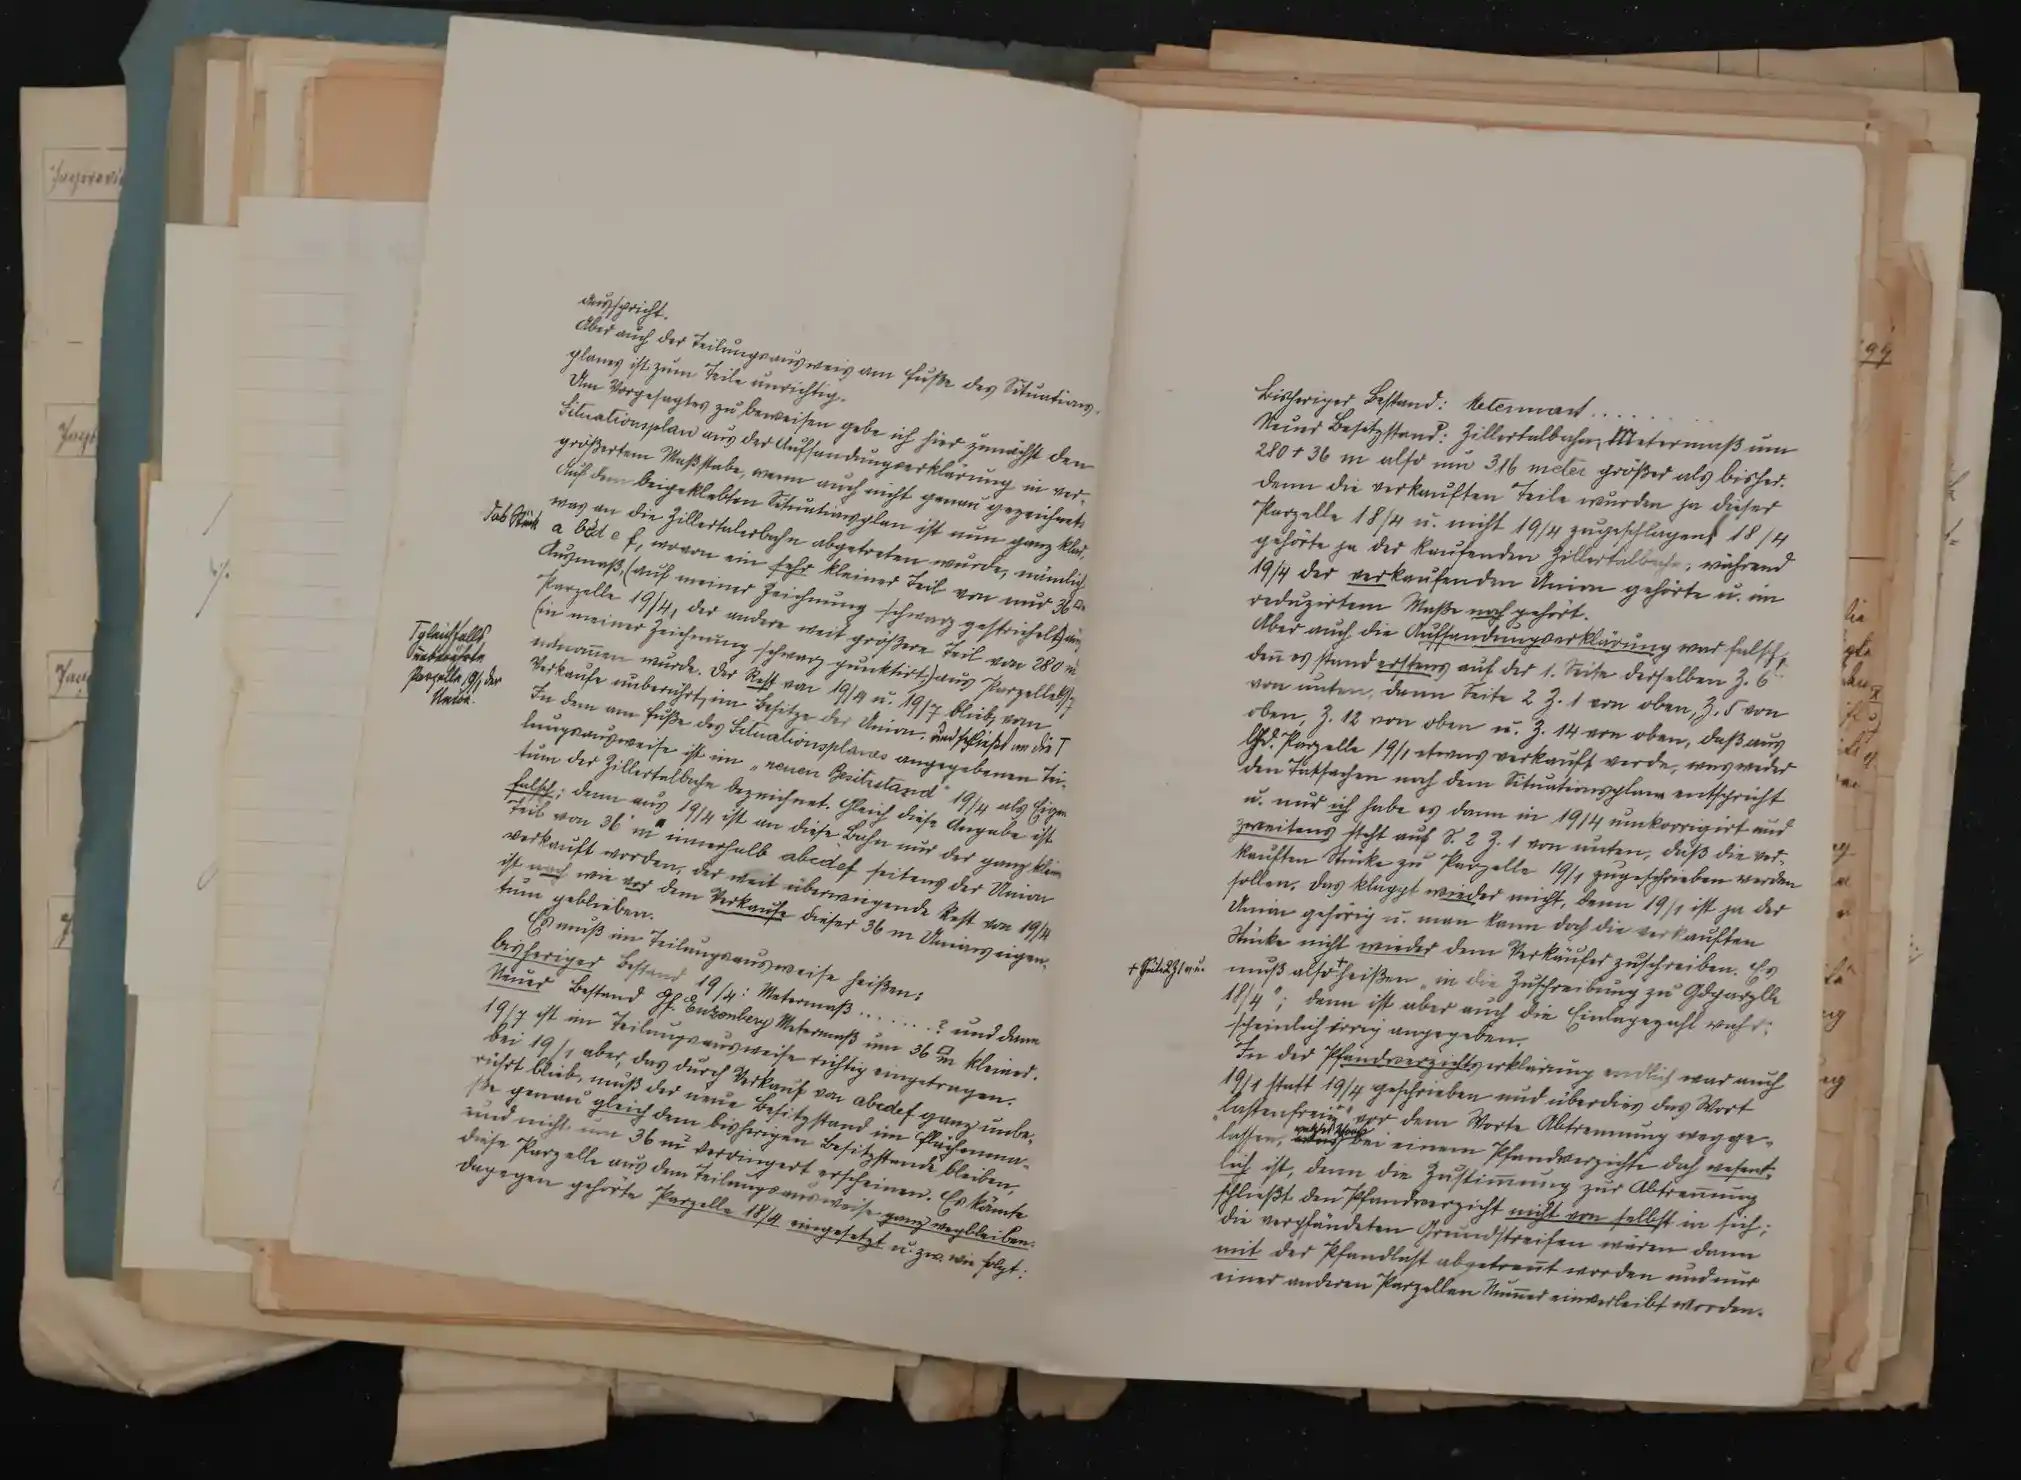 ausspricht.
Aber auch der Teilungsausweis am Fuße des Situations-
planes ist zum Teile unrichtig.
Um Vorgesagtes zu beweisen gebe ich hier zunächst den
Situationsplan aus der Aufsandungserklärung in ver-
größertem Maßstabe, wenn auch nicht genau gezeichnet.
Auf dem beigeklebten Situationsplan ist nun ganz klar,
was an die Zillertalerbahn abgetreten wurde, nämlich
das Stück a b c d e f, wovon ein sehr kleiner Teil von nur 36 □m
Ausmaß, (auf meiner Zeichnung schwarz gestrichelt) aus
Parzelle 19/4, der andere weit größere Teil von 280 m
(in meiner Zeichnung schwarz punktirt) aus Parzelle 19/7
entnommen wurde. Der Rest von 19/4 u. 19/7 blieb, vom
Verkaufe unberührt, im Besitze der Union. und schließt an die T
T gleichfalls
unberührte
Parzelle 19/1 der
Union.
In dem am Fuße des Situationsplanes angegebenen Tei-
lungsausweise ist im „neuen Besitzstand" 19/4 als Eigen
tum der Zillertalbahn bezeichnet. Gleich diese Angabe ist
falsch; denn aus 19/4 ist an diese Bahn nur der ganz kleine
Teil von 36 m innerhalb abcdef seitens der Union
verkauft worden, der weit überwiegende Rest von 19/4
ist nach wie vor dem Verkaufe dieser 36 m Unions eigen-
tum geblieben.
Es muß im Teilungsausweise heißen:
bisheriger Bestand 19/4: Metermaß . . . . . . . ? und dann
Neuer Bestand Gf. Enzenberg Metermaß um 36 □m kleiner.
19/7 ist im Teilungsausweise richtig eingetragen.
bei 19/1 aber, das durch Verkauf von abcdef ganz unbe-
rührt blieb, muß der neue Besitzstand im Flächenma-
ße genau gleich dem bisherigen Besitzstande bleiben,
und nicht um 36 m verringert erscheinen. Es könnte
diese Parzelle aus dem Teilungsausweise ganz wegbleiben.
dagegen gehörte Parzelle 18/4 eingesetzt u. zw. wie folgt:
Bisheriger Bestand: Metermaß . . . . . . . .
Neuer Besitzstand: Zillertalbahn, Metermaß um
280 + 36 m also um 316 meter größer als bisher.
denn die verkauften Teile wurden ja dieser
Parzelle 18/4 u. nicht 19/4 zugeschlagen; 18/4
gehörte ja der kaufenden Zillertalbahn; während
19/4 der verkaufenden Union gehörte u. im
reduzirtem Maße noch gehört.
Aber auch die Aufsandungserklärung war falsch,
den es stand erstens auf der 1. Seite derselben Z. 6
von unten, dann Seite 2 Z. 1 von oben, Z. 5 von
oben, Z. 12 von oben u. Z. 14 von oben, daß aus
Gd. Parzelle 19/1 etwas verkauft werde, was weder
den Tatsachen noch dem Situationsplane entspricht
u. nur ich habe es dann in 19/4 umkorrigirt und
zweitens steht auf S. 2 Z. 1 von unten, daß die ver-
kauften Stücke zu Parzelle 19/1 zugeschrieben werden
sollen. das klappt wieder nicht, denn 19/1 ist ja der
Union gehörig u. man kann doch die verkauften
Stücke nicht wieder dem Verkäufer zuschreiben. Es
+ Seite 2 Z 1 v u. muß also + heißen „in die Zuschreibung zu Gdparzelle
18/4"; denn ist aber auch die Einlagezahl wahr-
scheinlich irrig angegeben.
In der Pfandverzichtserklärung endlich war auch
19/1 statt 19/4 geschrieben und überdies das Wort
„lastenfreie" vor dem Worte Abtrennung wegge-
lassen, welches Wort bei einem Pfandverzichte doch wesent-
lich ist, denn die Zustimmung zur Abtrennung
schließt den Pfandverzicht nicht von selbst in sich;
die verpfändeten Grundstreifen wären dann
mit der Pfandlast abgetrennt worden und nur
einer anderen Parzellen Nummer einverleibt worden.